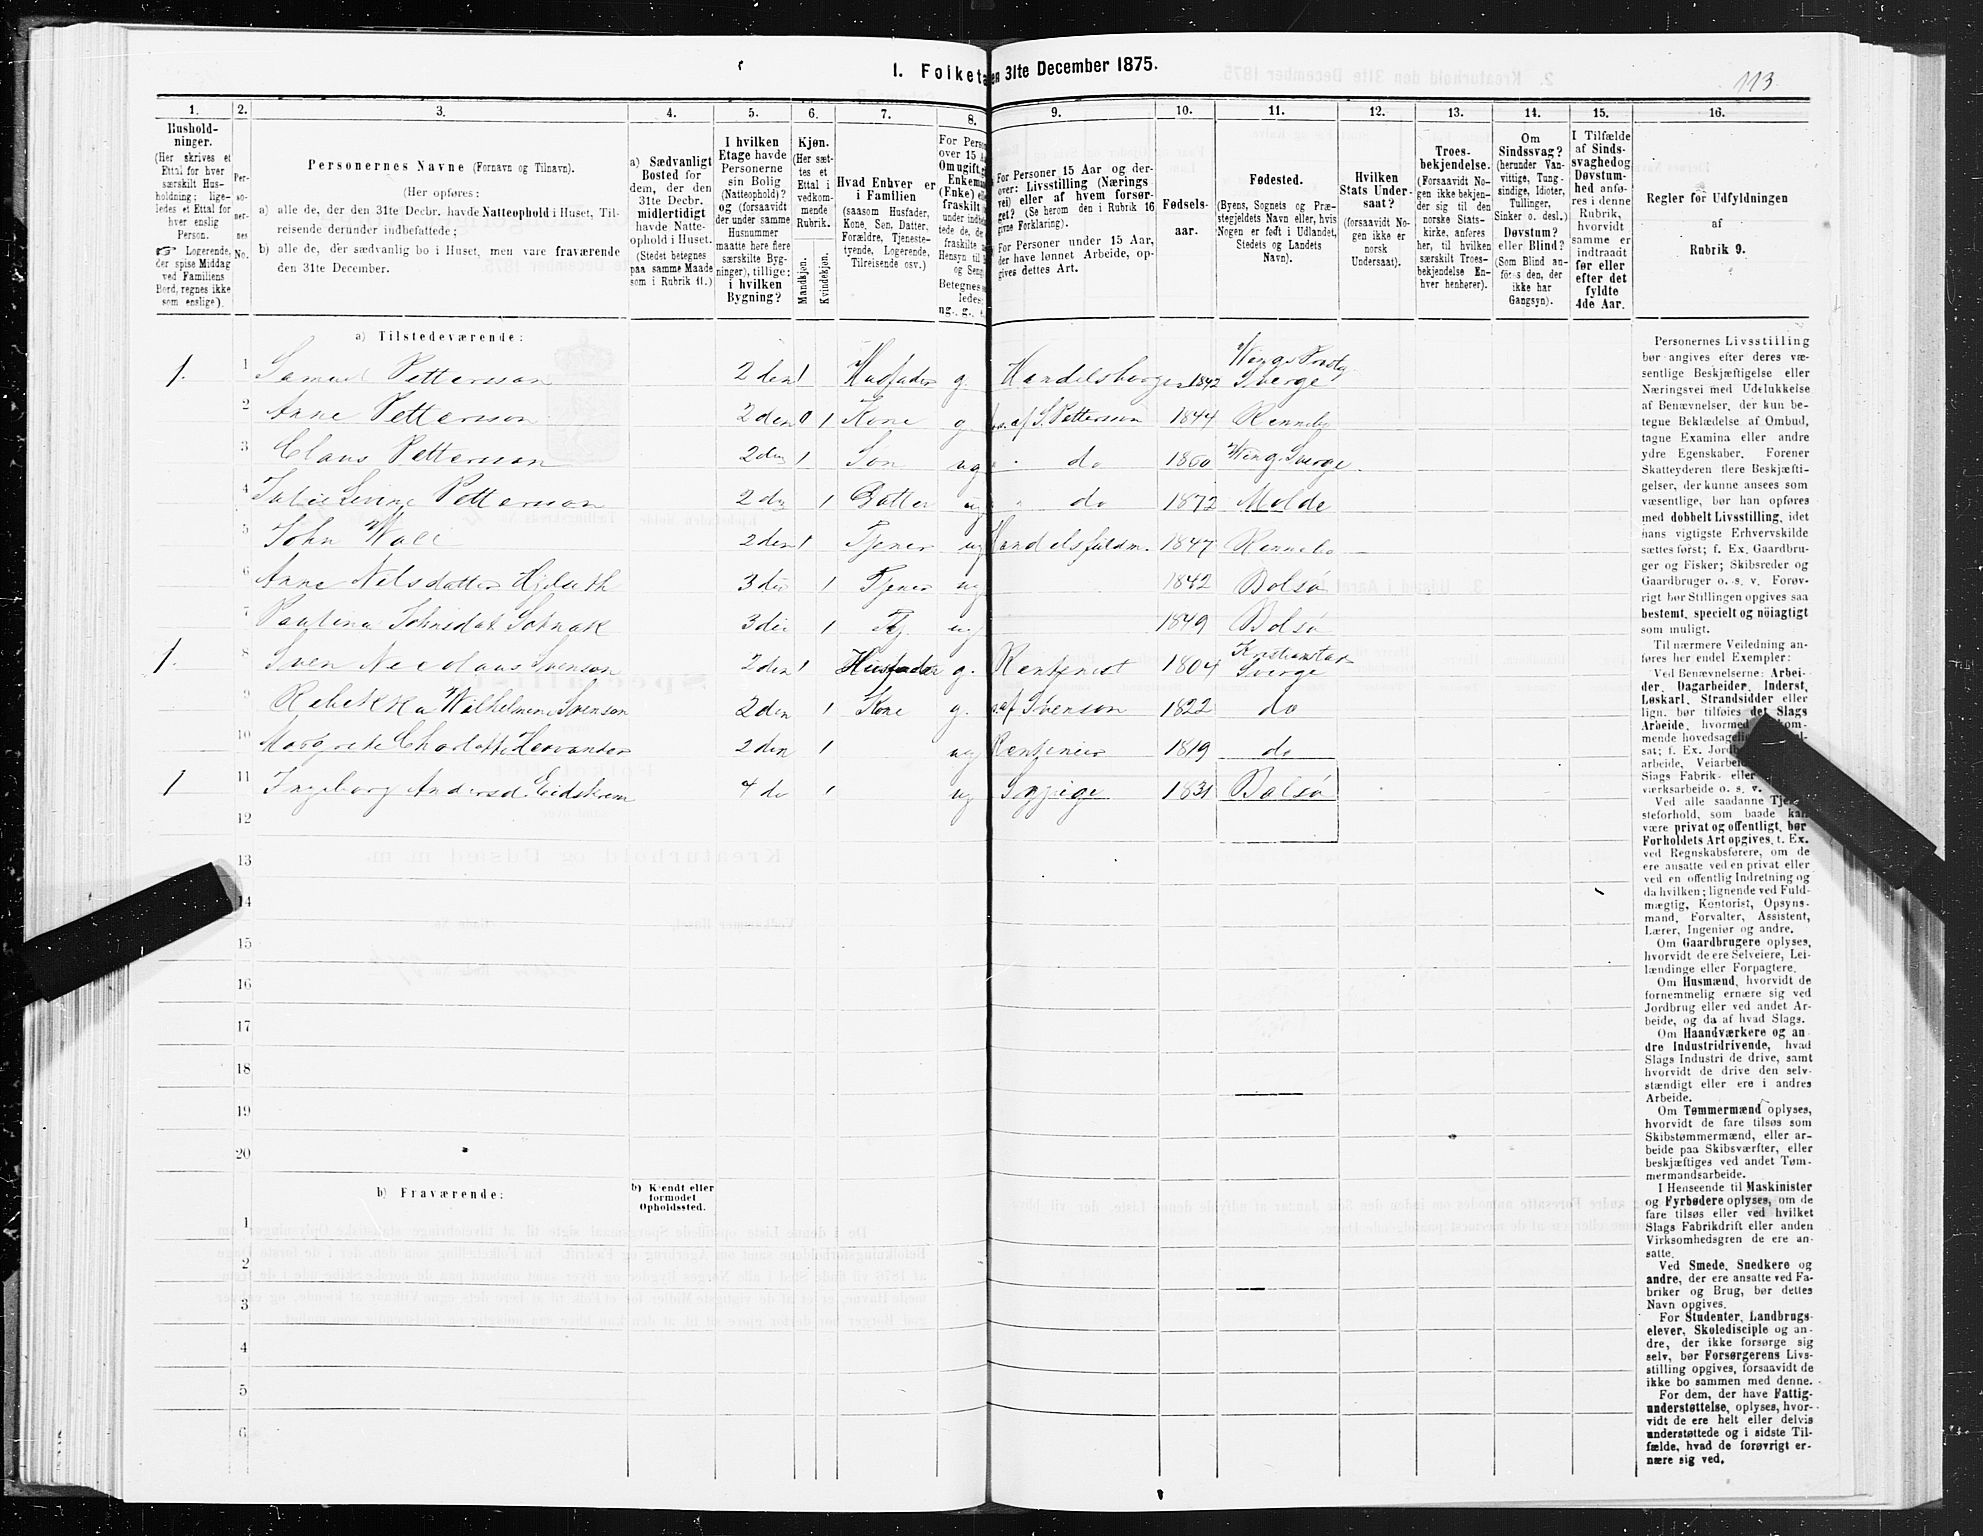 1. Folketæ en 31te December 1875.
113
1. 2. 3. 4. 5. 6. 7. 8. 9. 10. 11. 12. 13. 14. 15. 16.
Hushold-
ninger.
(Her skrives et
Ettal for hver
særskilt Hus-
holdning; lige-
ledes et Ettal for
hver enslig
Person.
☞ Logerende,
der spise Middag
ved Familiens
Bord, regnes ikke
som enslige).
Per-
so-
ner-
nes
No.
Personernes Navne (Fornavn og Tilnavn).
(Her opføres:
a) alle de, der den 31te Decbr. havde Natteophold i Huset, Til-
reisende derunder indbefattede;
b) alle de, der sædvanlig bo i Huset, men vare fraværende
den 31te December.
a) Sædvanligt
Bosted for
dem, der den
31te Decbr.
midlertidigt
havde Natte-
ophold i Huset.
(Stedet betegnes
paa samme Maade
som i Rubrik 11.)
I hvilken
Etage havde
Personerne
sin Bolig
(Natteophold)?
og (forsaavidt
der under samme
Husnummer
maatte høre flere
særskilte Byg-
ninger), tillige:
i hvilken
Bygning?
Kjøn.
(Her sæt-
tes et
Ettal i
vedkom-
mende
Rubrik.
Mandkjøn.
Kvindekjøn.
Hvad Enhver er
i Familien
(saasom Husfader,
Kone, Søn, Datter,
Forældre, Tjeneste-
tyende, Logerende,
Tilreisende osv.)
For Person
over 15 A
Om ugift, g
Enkem
(Enke) el
fraskilt
For Personer 15 Aar og der-
over: Livsstilling (Nærings
vei) eller af hvem forsør-
get? (Se herom den i Rubrik 16
givne Forklaring).
For Personer under 15 Aar,
der have lønnet Arbeide, op-
gives dettes Art.
Fødsels-
aar.
Fødested.
(Byens, Sognets og Præ-
stegjeldets Navn eller, hvis
Nogen er født i Udlandet,
Stedets og Landets
Navn).
Hvilken
Stats Under-
saat?
(forsaavidt No-
gen ikke er
norsk
Undersaat).
Troes-
bekjendelse.
(Forsaavidt No-
gen ikke bekjen-
der sig til den
norske Stats-
kirke, anføres
her, til hvilken
særskilt Troes-
bekjendelse En-
hver henhører).
Om
Sindssvag?
(herunder Van-
vittige, Tung-
sindige, Idioter,
Tullinger,
Sinker o. desl.)
Døvstum?
eller Blind?
(Som Blind an-
føres den, der
ikke har
Gangsyn).
I Tilfælde
af Sinds-
svaghed og
Døvstum-
hed anfø-
res i denne
Rubrik,
hvorvidt
samme er
indtraadt
før eller
efter det
fyldte
4de Aar.
Regler for Udfyldningen
af
Rubrik 9.
a) Tilstedeværende:
1. 1 Samuel Pettersson 2den 1 Husfader g. Handelsborger 1842 Wings Sverge
2 Anne Petterson 2den 0 1 Kone g. af S. Petterson 1844 Renneby
3 Claus Petterson 2den 1 Søn ug do Wing Sverge
4 Petterson 2den 1 Datter ug do 1872 Molde
5 John Wall 2den 1 Tjener ug Handelsfuldm. 1847 Renneby
6 Anne Nelsdatter Hjelseth 3die 1 Tjener ug 1842 Bolsø
7 Paulina 3die 1 Tj. ug 1849 Bolsø
1. 8 Sven Nicolaus Svenson 2den 1 Husfader g. 1804 Kristianstad Sverge
Rebekka Wilhelmine Svenson 2den 1 Kone g. af Svenson 1822 do
10 Margrete Charlotte 2den 1 ug Rentenier 1819 do
1 11 Ingeborg Andersd. Eidskrem 4 de 1 ug Sypige 1831 Bolsø
12
13
14
15
16
17
18
19
20
b) Fraværende:
b) Kjendt eller
formodet
Opholdssted.
1
2
3
4
5
6
Personernes Livsstilling
bør angives efter deres væ-
sentlige Beskjæftigelse eller
Næringsvei med Udelukkelse
af Benævnelser, der kun be-
tegne Beklædelse af Ombud,
tagne Examina eller andre
ydre Egenskaber. Forener
Skatteyderen flere Beskjæfti-
gelser, der kunne ansees som
væsentlige, bør han opføres
med dobbelt Livsstilling, idet
hans vigtigste Erhvervskilde
sættes først; f. Ex. Gaardbru-
ger og Fisker; Skibsreder og
Gaardbruger o. s. v. Forøv-
rigt bør Stillingen opgives saa
bestemt, specielt og nöiagtigt
som muligt.
Til nærmere Veiledning an-
føres her endel Exempler:
Ved Benævnelserne: Arbei-
der, Dagarbeider, Inderst,
Løskarl, Strandsidder eller
lign. bør tilføies det Slags
Arbeide, hvormed
mende hovedsagelig
sat; f. Ex. Jordb
arbeide, Veiarbei
Slags Fabrik- eller
værksarbeide o. s. v.
Ved alle saadanne Tje
steforhold, som baade kan
være privat og offentligt, bør
Forholdets Art opgives, t. Ex.
ved Regnskabsførere, om de
ere ansatte ved en privat eller
ved en offentlig Indretning og
da hvilken; lignende ved Fuld-
mægtig, Kontorist, Opsyns-
mand, Forvalter, Assistent,
Lærer, Ingeniør og andre.
Om Gaardbrugere oplyses,
hvorvidt de ere Selveiere, Lei-
lændinge eller Forpagtere.
Om Husmænd, hvorvidt de
fornemmelig ernære sig ved
Jordbrug eller ved andet Ar-
beide, og da af hvad Slags.
Om Haandværkere og an
dre Industridrivende, hvad
Slags Industri de drive, samt
hvorvidt de drive den selv-
stændigt eller ere i andres
Arbeide.
Om Tømmermænd oplyses,
hvorvidt de fare tilsøs som
Skibstømmermænd, eller ar-
beide paa Skibsværfter, eller
beskjæftiges ved andet Tøm-
mermandsarbeide.
I Henseende til Maskinister
og Fyrbødere oplyses, om de
fare tilsøs eller ved hvilket
Slags Fabrikdrift eller anden
Virksomhedsgren de ere an-
satte.
Ved Smede, Snedkere og
andre, der ere ansatte ved Fa-
briker og Brug, bør dettes
Navn opgives.
For Studenter, Landbrugs-
elever, Skoledisciple og an-
dre, der ikke forsørge sig
selv, bør Forsørgerens Livs-
stilling opgives, forsaavidt de
ikke bo sammen med denne.
For dem, der have Fattig-
understøttelse, oplyses, hvor-
vidt de ere helt eller delvis
understøttede og i sidste Til-
fælde, hvad de forøvrigt er-
nære sig ved.